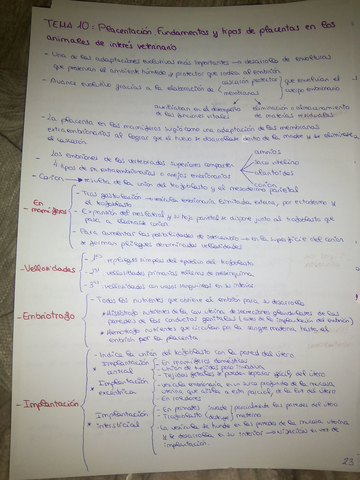 TEMA 10: Placentación, Fundamentos y tipos de placentas en los
animales de interés veterinario
- Una de las adaptaciones evolutivas más importantes → desarrollo de envolturas
que preservan el ambiente húmedo y protector que rodea al embrión
- Avance evolutivo gracias a la elaboración de
cascarón protector
membranas
que envuelven el
cuerpo embrionario
auxiliaran en el desempeño
de las funciones vitales
eliminación o almacenamiento
de materias residuales
- La placenta en los mamíferos surgió como una adaptación de las membranas
extraembrionarias al lograr que el huevo se desarrollase dentro de la madre y se eliminara
el cascarón
- Los embriones de los vertebrados superiores comparten
4 tipos de m. extraembrionarias o anejos embrionarios
amnios
saco vitelino
alantoides
corion
- Corion → resulta de la unión del trofoblasto y el mesodermo parietal
- En mamíferos
- Tras gastrulación → vesícula embrionaria limitada externa, por ectodermo y
el trofoblasto
- Expansión del mesodermo y su hoja parietal se dispone junto al trofoblasto que
pasa a llamarse corion
- Para aumentar las posibilidades de → en la superficie del corion
se forman pliegues denominados vellosidades
- Vellosidades
- 1ª: repliegues simples del epitelio del trofoblasto
- 2ª: vellosidades primarias rellenas de mesénquima
- 3ª: vellosidades con vasos sanguíneos en su interior
- Embriotrofo
- Todos los nutrientes que obtiene el embrión para su desarrollo
* Histotrofo: nutrientes de la luz uterina de secreciones glandulares de las
paredes de los conductos genitales (antes de la implantación del embrión)
* Hemotrofo: nutrientes que circulan por la sangre materna hasta el
embrión por la placenta
- Implantación
- Indica la unión del trofoblasto con la pared del útero
* Implantación central
- En mamíferos domésticos
- Unión de tejidos poco invasiva
- Tejidos fetales se ponen superficial del útero
* Implantación excéntrica
- vesícula embrionaria, en una zona profunda de la mucosa
uterina que aísla a esta parcial. de la luz del útero
- En roedores
* Implantación intersticial
- En primates invade parcialmente las paredes del útero
- Trofoblasto
- La vesícula se hunde en las paredes de la mucosa uterina
y se desarrolla en su interior → de
implantación.
23